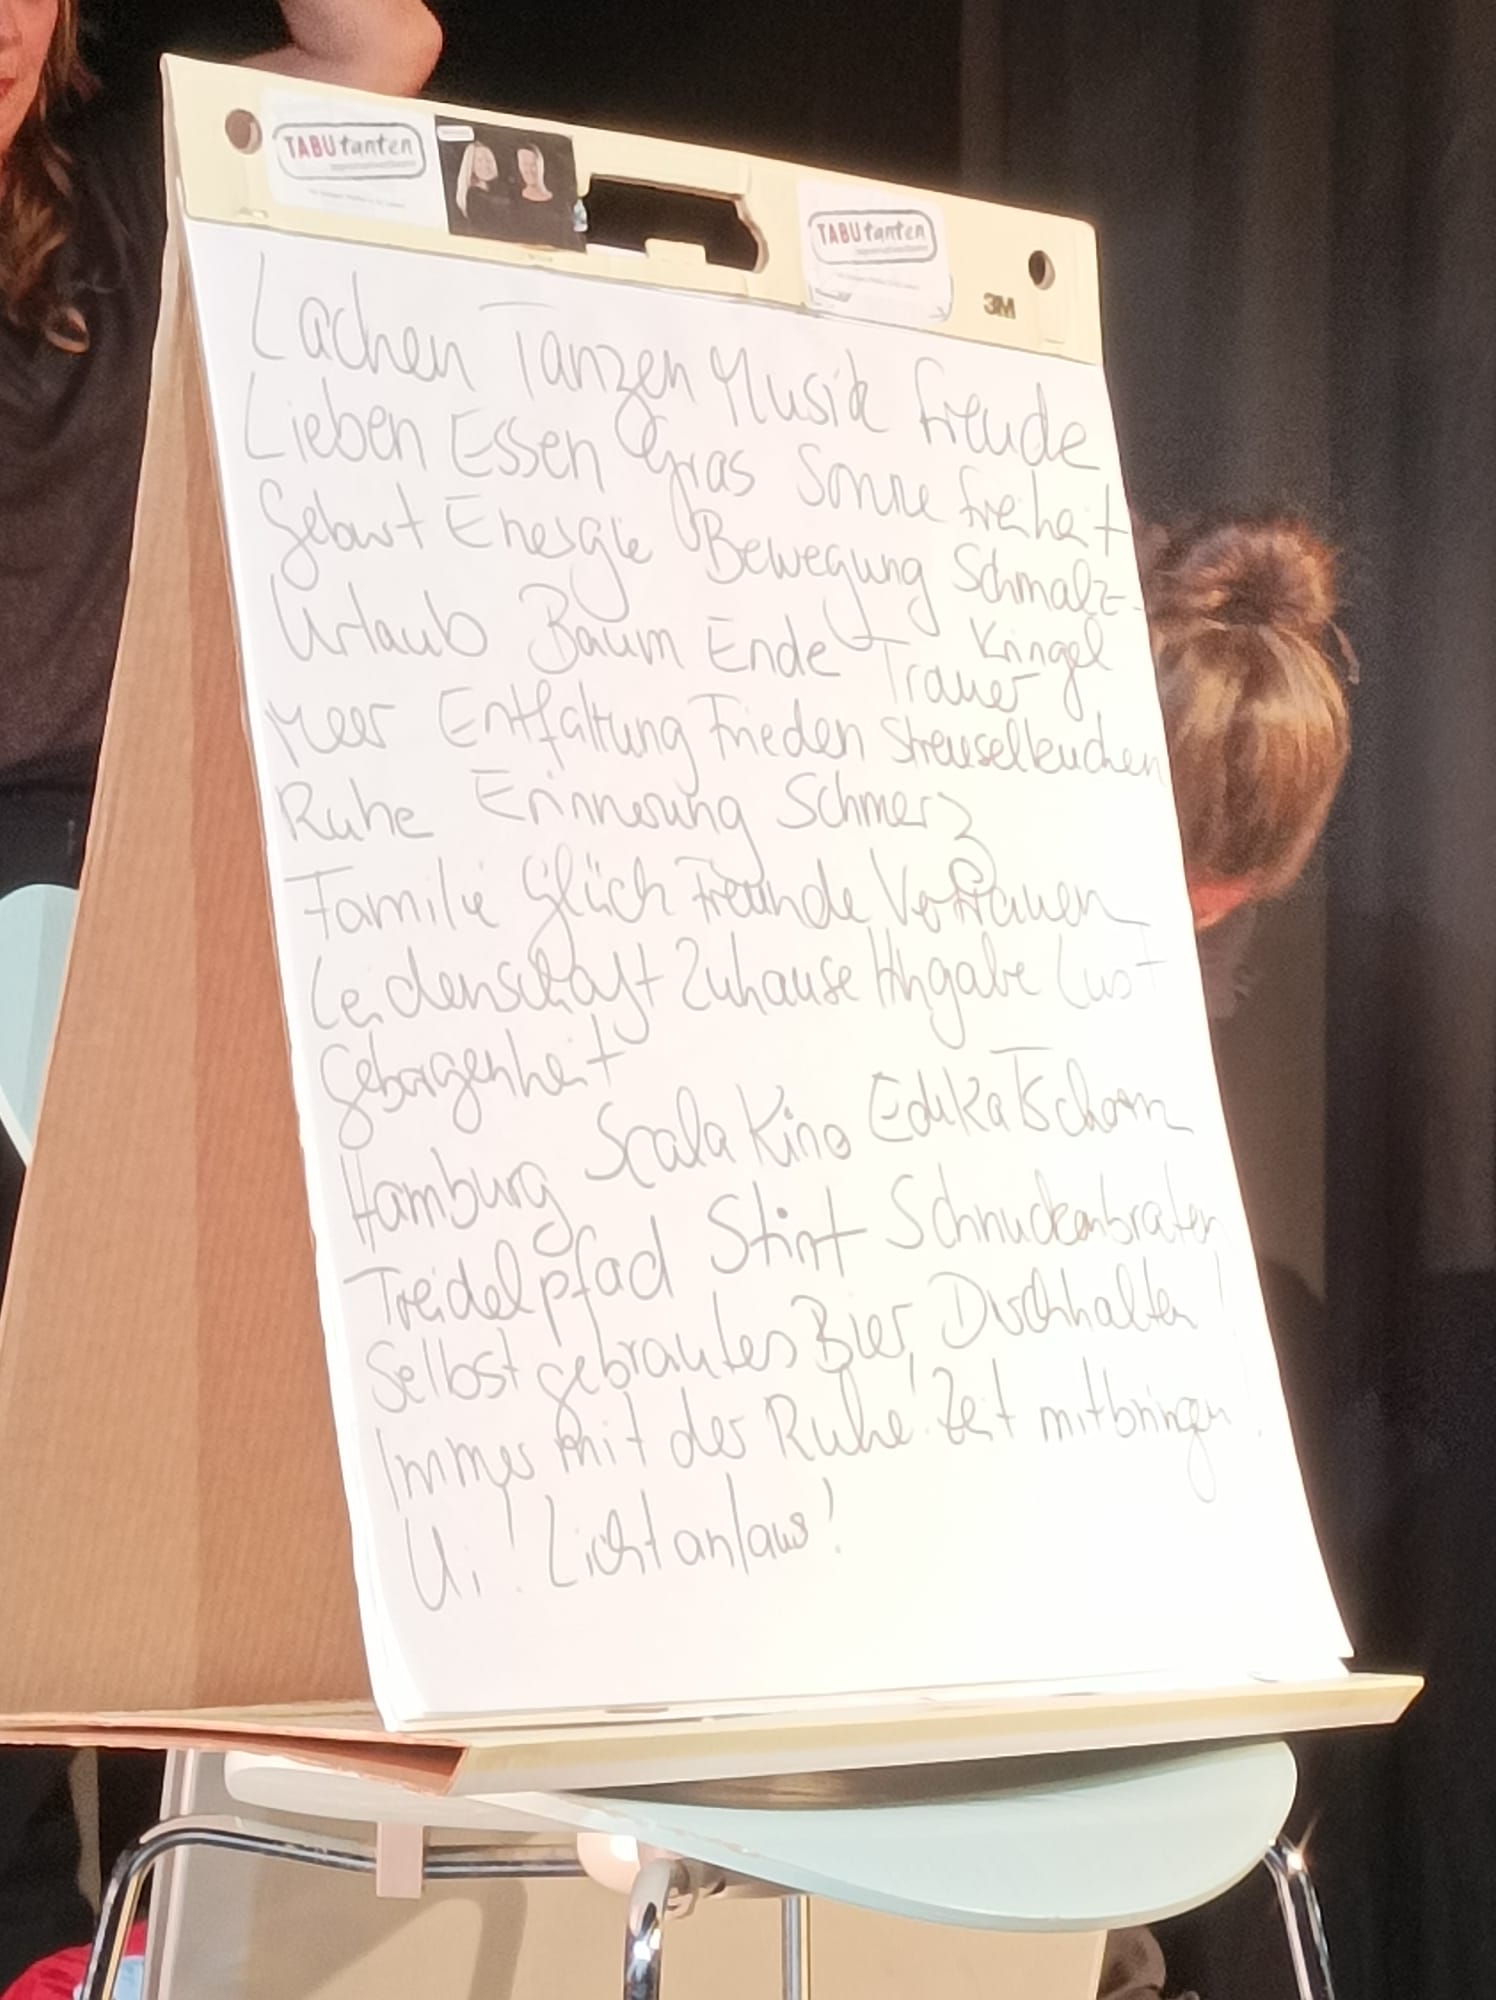 TABUtanten
TABUtanten
3M
Lachen Tanzen Musik Freude
Lieben Essen Gras Sonne Freiheit
Geburt Energie Bewegung Schmalz-
Kringel
Urlaub Baum Ende Trauer
Meer Entfaltung Frieden Streuselkuchen
Ruhe Erinnerung Schmerz
Familie Glück Freunde Vertrauen
Leidenschaft Zuhause Hingabe Lust
Geborgenheit
Hamburg Scala Kino Edeka Tschorn
Treidelpfad Stint Schnuckenbraten
Selbst gebrautes Bier, Durchhalten!
Immer mit der Ruhe! Zeit mitbringen!
Ui! Licht an/aus!